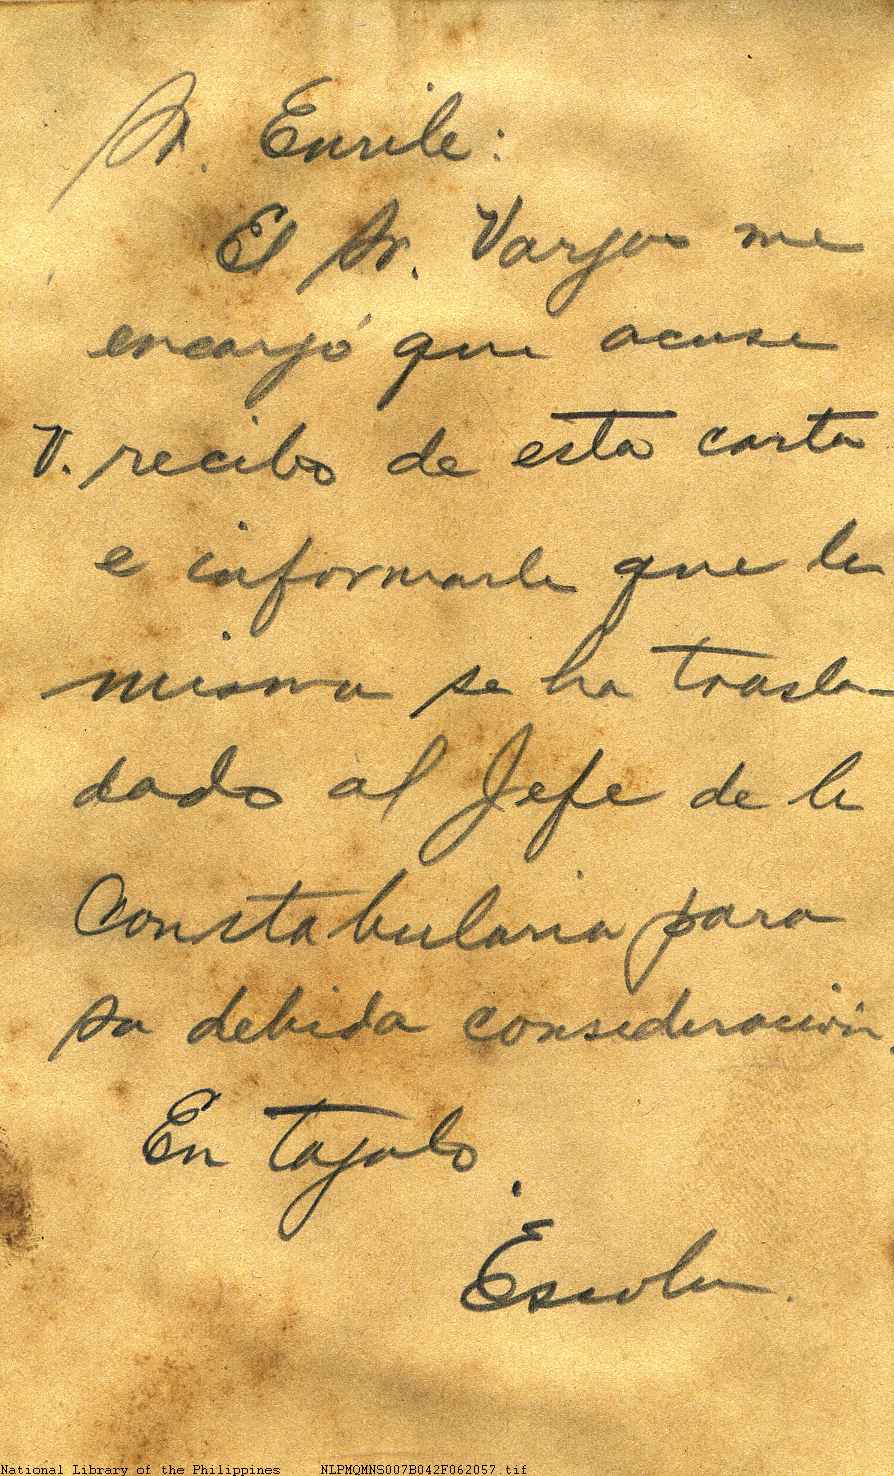 Sr. Enrile:
El Sr. Vargas me
encargó que acuse
V. recibo de esta carta
e informarle que la
misma se ha trasla-
dado al Jefe de la
Constabularia para
su debida consideración.
En tagalo.
National Library of the Philippines NLPMQMNS007B042F062057.tif